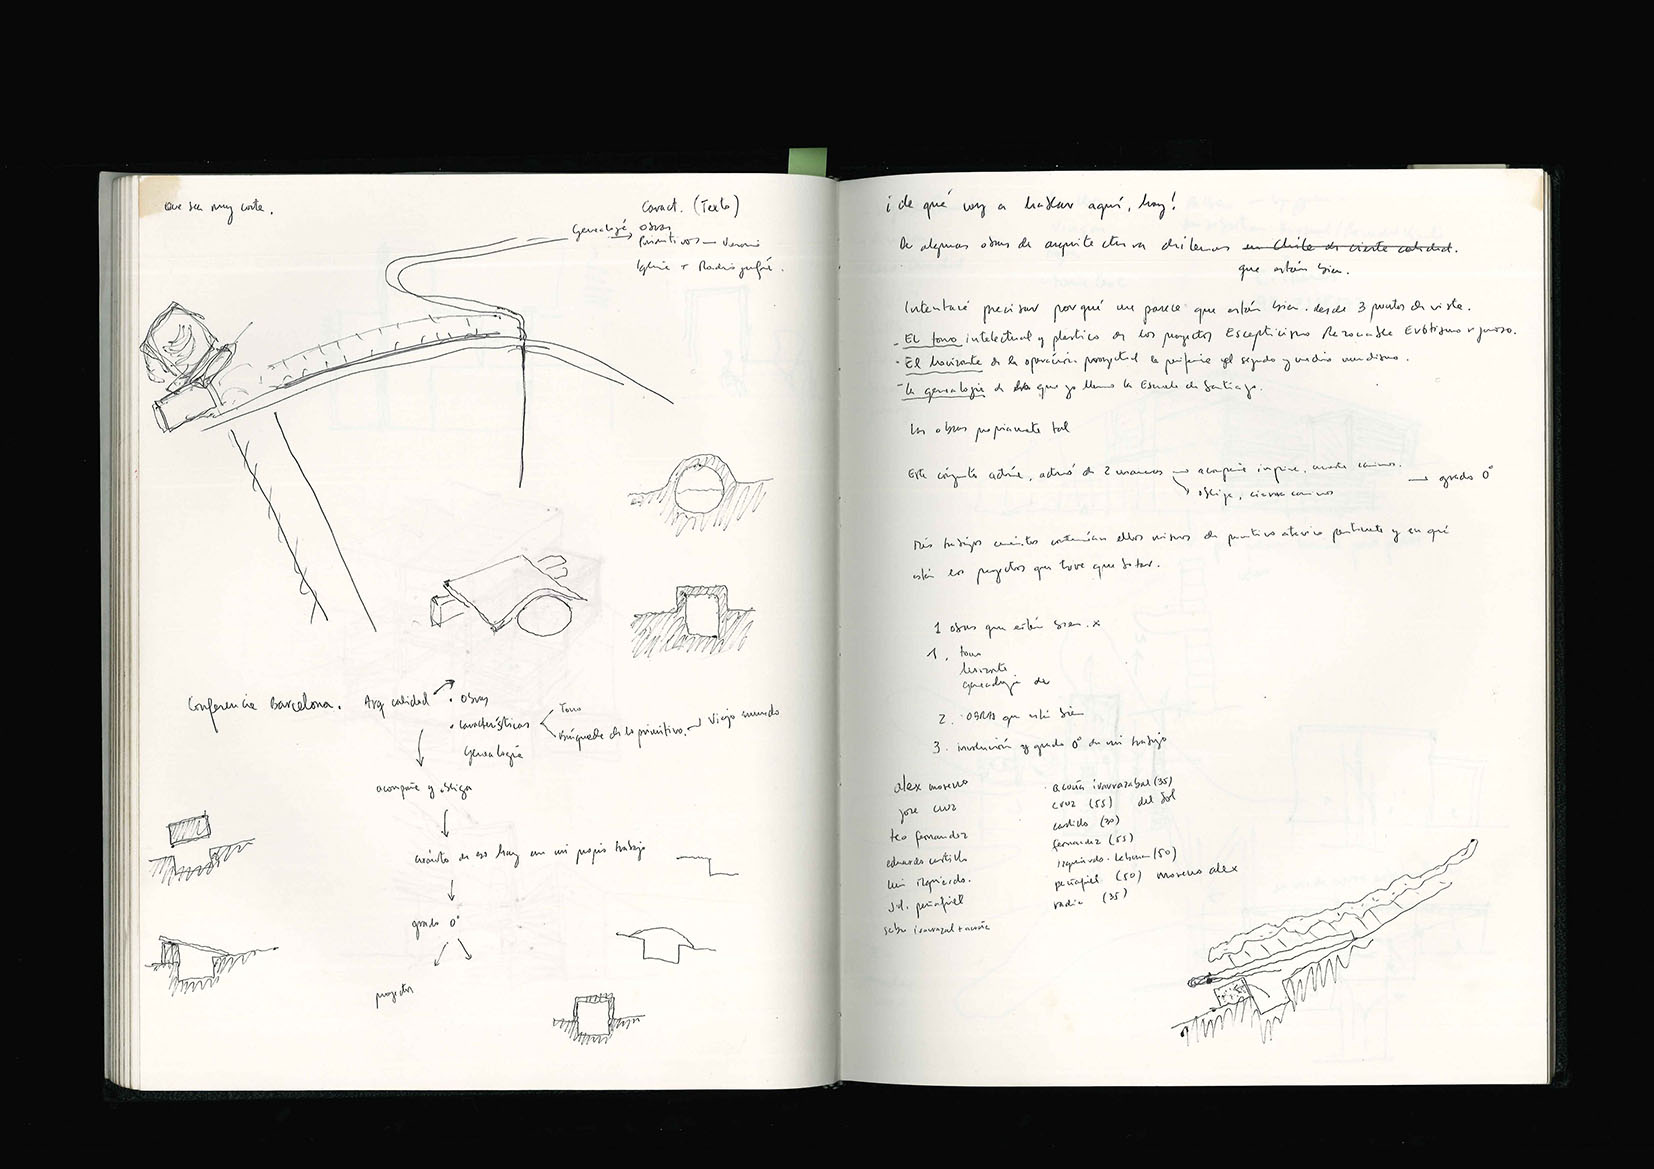 que sea muy corta.
Caract. (Texto)
Genealogía
obras
primitivos
Iglesia + Radic
Conferencia Barcelona.
Arq calidad
. obras
. características
Genealogía
Tono
Búsqueda de lo primitivo. Viejo mundo
acompañe y obliga
cuánto de eso hay en mi propio trabajo
grado 0°
proyectos
¡de qué voy a hablar aquí, hoy!
De algunas obras de arquitectura chilenas en Chile de cierta calidad.
que están bien.
Intentaré precisar porqué me parece que están bien. desde 3 puntos de vista.
- El tono intelectual y plástico de los proyectos Escepticismo Razonable
- El horizonte de la operación proyectual la periferie
- la genealogía de que yo llamo la Escuela de Santiago.
las obras propiamente tal
Este conjunto actúe, actuó de 2 maneras acompañe inspire,
obliga, cierra caminos
grado 0°
están los proyectos que tuve que
1 obras que están bien. x
1. tono
horizonte
genealogía de
2. obras que están bien
3. involución y grado 0° de mi trabajo
alex moreno
jose cruz
teo fernandez
eduardo castillo
luis izquierdo.
J.D. peñafiel
sebu irarrazabal + acuña
acuña irarrazabal (35)
cruz (55) del Sol
castillo (30)
fernandez (55)
izquierdo. Lehman (50)
peñafiel (50) moreno alex
radic (35)